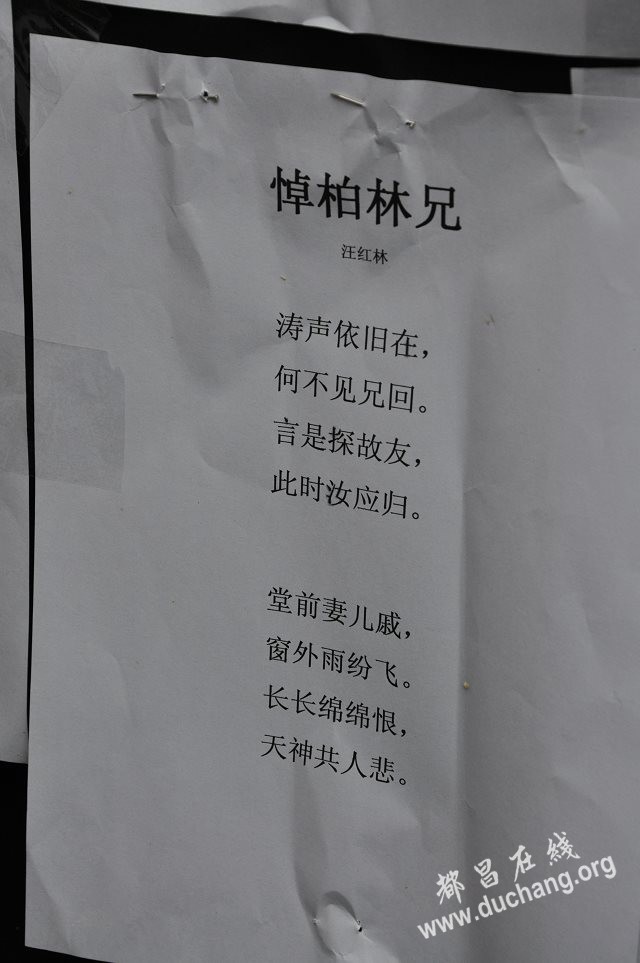 悼柏林兄
汪红林
涛声依旧在，
何不见兄回。
言是探故友，
此时汝应归。
堂前妻儿戚，
窗外雨纷飞。
长长绵绵恨，
天神共人悲。
都昌在线
www.duchang.org